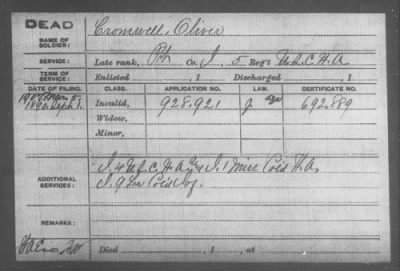 DEAD
NAME OF SOLDIER: Cromwell, Oliver
SERVICE: Late rank, Pvt Co. I, 5 Reg't U.S.C.H.A.
TERM OF SERVICE: Enlisted , 1 Discharged , 1
DATE OF FILING. CLASS. APPLICATION NO. LAW. CERTIFICATE NO.
1890. Sept. 1. Invalid, 928.921 692.889
Widow,
Minor,
ADDITIONAL SERVICES: I. 4 U.S.C.H.A. I. 1 Miss Cold H.A.
I. 9 La Cold Inf.
REMARKS:
Died , 1 , at